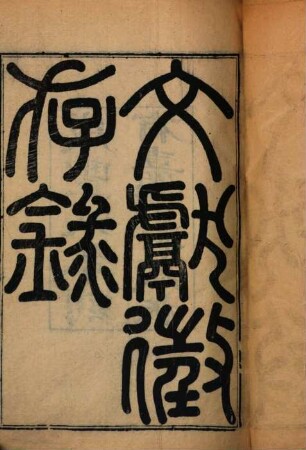 文獻徵
存錄